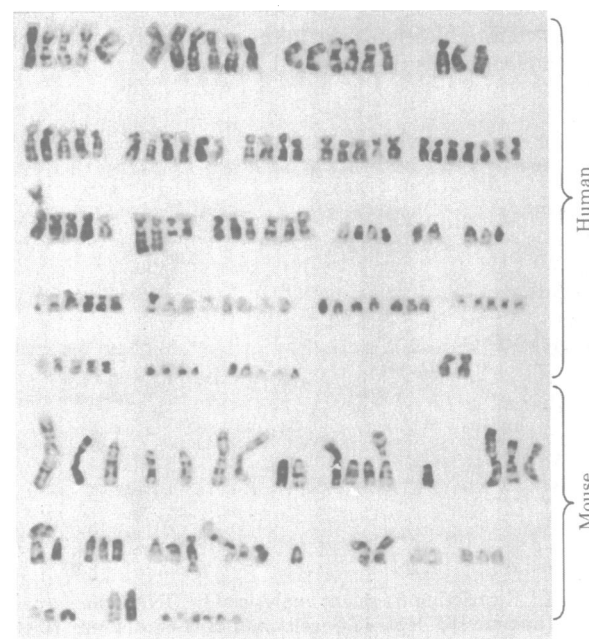 Human
Mouse